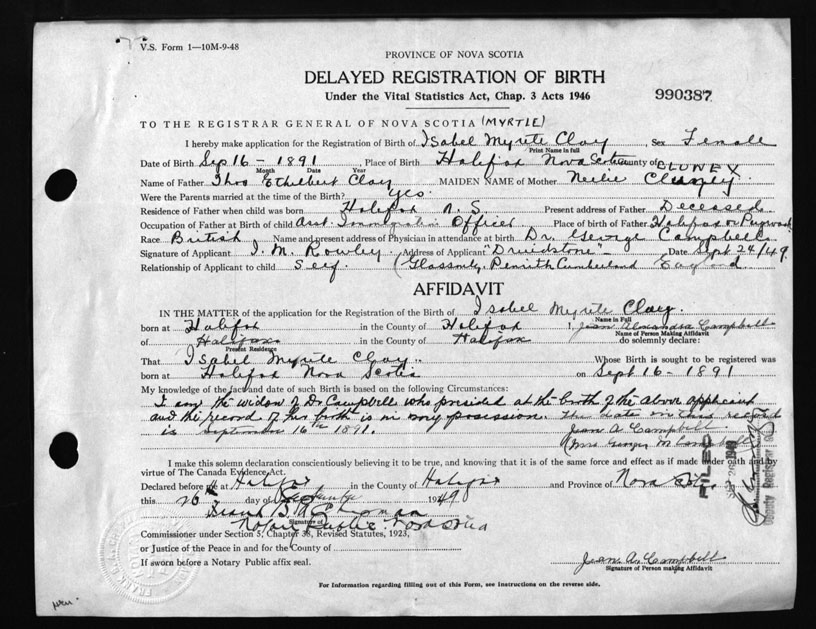 V.S. Form 1—10M-9-48
PROVINCE OF NOVA SCOTIA
DELAYED REGISTRATION OF BIRTH
Under the Vital Statistics Act, Chap. 3 Acts 1946
990387
TO THE REGISTRAR GENERAL OF NOVA SCOTIA (MYRTLE)
I hereby make application for the Registration of Birth of Isabel Myrtle Clay Sex Female
Print Name in full
Date of Birth Sep 16 - 1891 Place of Birth Halifax Nova Scotia County of
Month Date Year
Name of Father Thos Ethelbert Clay MAIDEN NAME of Mother Nellie
Were the Parents married at the time of the Birth? Yes.
Residence of Father when child was born Halifax N.S. Present address of Father Deceased
Occupation of Father at Birth of child Asst. Immigration Officer Place of birth of Father Halifax or Pugwash
Race British Name and present address of Physician in attendance at birth Dr. George Campbell
Signature of Applicant I. M. Rowley Address of Applicant "Druidstone" Date Sept 24/49
Relationship of Applicant to child Self (Glassonby, Penrith Cumberland England
AFFIDAVIT
IN THE MATTER of the application for the Registration of the Birth of Isabel Myrtle Clay.
Name in Full
born at Halifax in the County of Halifax I, Jean Alexandra Campbell
Name of Person Making Affidavit
of Halifax in the County of Halifax do solemnly declare:
Present Residence
That Isabel Myrtle Clay Whose Birth is sought to be registered was
born at Halifax Nova Scotia on Sept 16 - 1891
My knowledge of the fact and date of such Birth is based on the following Circumstances:
I am the widow of Dr. Campbell who presided at the birth of the above applicant
and the record of this birth is in my posession. The date in this record
is September 16th 1891. Jean A. Campbell
(Mrs George M Campbell
I make this solemn declaration conscientiously believing it to be true, and knowing that it is of the same force and effect as if made under oath and by
virtue of The Canada Evidence Act.
Declared before me at Halifax in the County of Halifax and Province of Nova Scotia
this 26th day of September 1949
Signature of
Notary Public Nova Scotia
Commissioner under Section 5, Chapter 38, Revised Statutes, 1923,
or Justice of the Peace in and for the County of
If sworn before a Notary Public affix seal.
Jean A. Campbell
Signature of Person making Affidavit
For Information regarding filling out of this Form, see Instructions on the reverse side.
FILED
1949
Deputy Registrar